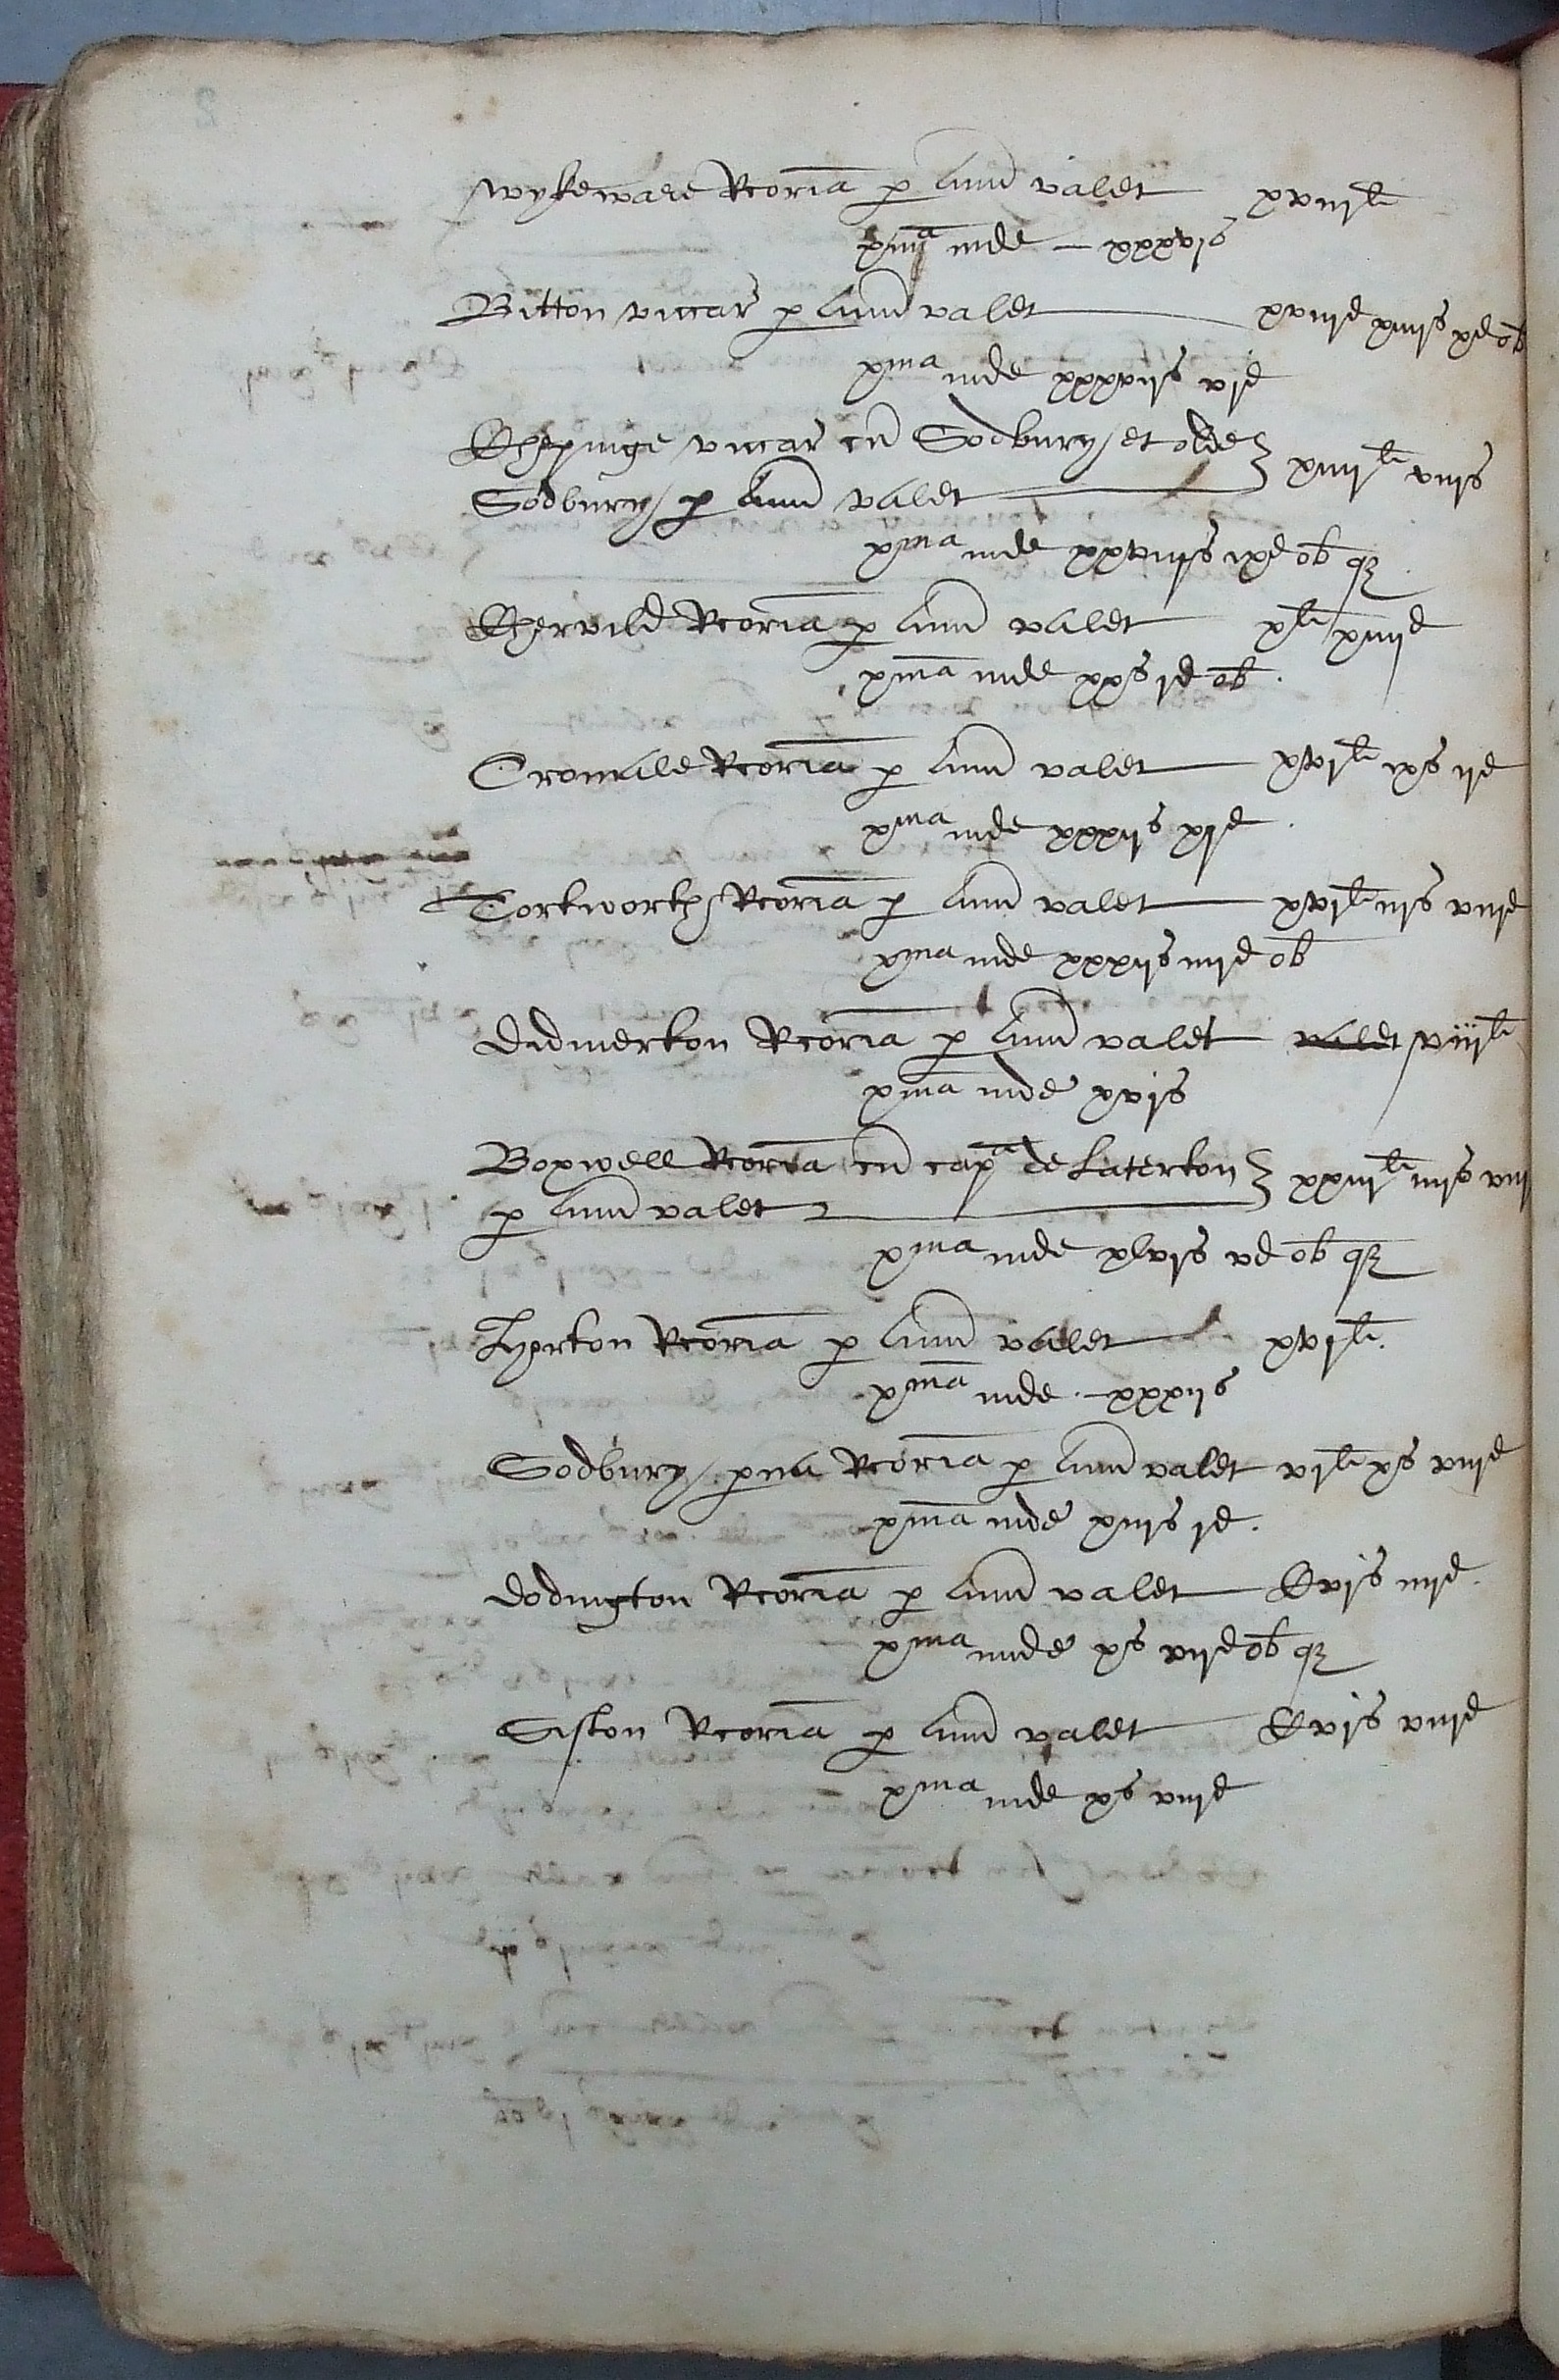 Wykeware Rcoria p Annu valet xviij li
xma inde – xxxvj s
Bitton vicar p Annu valet xviij l xiiij s xd ob
xma inde xxxvij s vj d
Chepinge vicar cu Sodbury et olde
Sodbury p Annu valet xiiij li viij s
xma inde xxviij s ixd ob qz
Chervild Rcoria p Annu valet x li xiiij d
xma inde xxs jd ob
Cromale Rcoria p Annu valet xvj li ixs ijd
xma inde xxxij s xj d
Tortworth Rcoria p Annu valet xvj li iijs viijd
xma inde xxxij s iiijd ob
Didmerton Rcoria p Annu valet valet viij li
xma inde xvjs
Boxwell Rcoria cu capa de Laterton
p Annu valet xxiij li iiijs viij
xma inde xlvjs vd ob qz
Tyerton Rcoria p Annu valet xvj li
xma inde – xxxijs
Sodbury pua Rcoria p Annu valet vj li xs viijd
xma inde xiijs jd
Dodington Rcoria p Annu valet Cvjs iiijd
xma inde xs vijd ob qz
Siston Rcoria p Annu valet Cvjs viijd
xma inde xs viijd